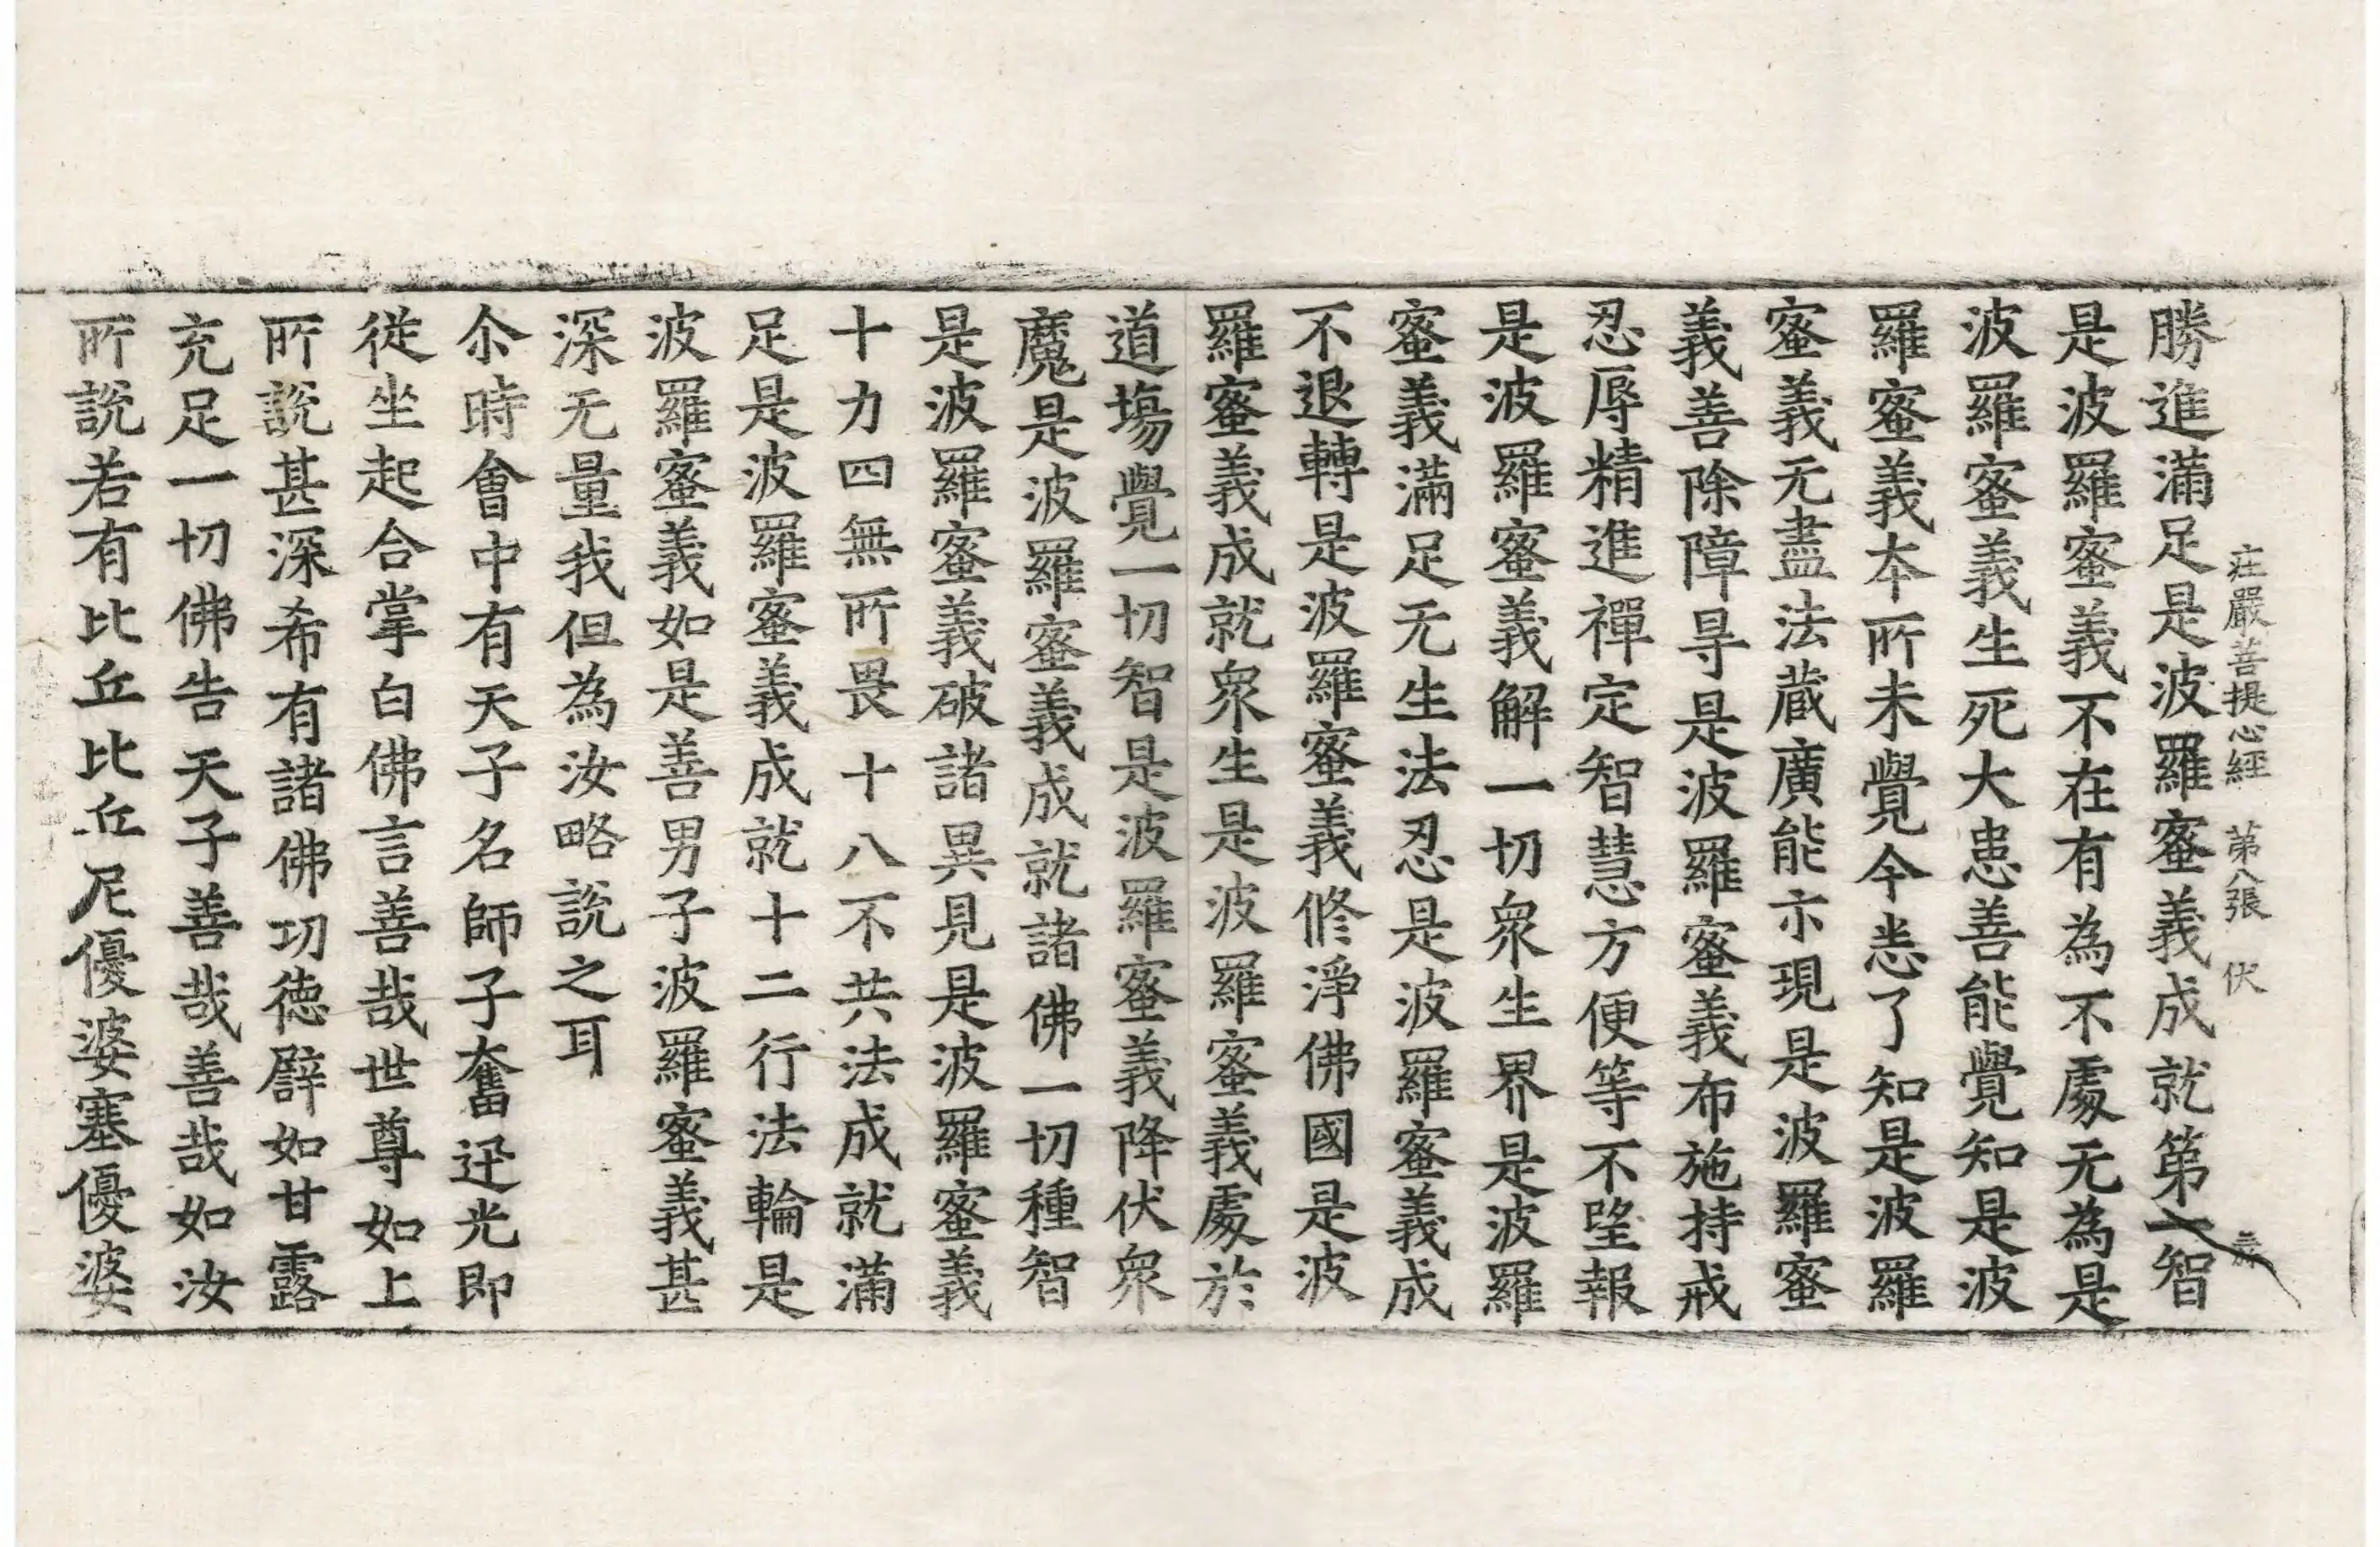 莊嚴菩提心經 第八張 伏
勝進滿足是波羅蜜義成就第一智
是波羅蜜義不在有為不處无為是
波羅蜜義生死大患善能覺知是波
羅蜜義本所未覺今悉了知是波羅
蜜義无盡法蔵廣能示現是波羅蜜
義善除障㝵是波羅蜜義布施持戒
忍辱精進禪定智慧方便等不望報
是波羅蜜義解一切衆生界是波羅
蜜義滿足无生法忍是波羅蜜義成
不退轉是波羅蜜義修淨佛國是波
羅蜜義成就衆生是波羅蜜義處於
道場覺一切智是波羅蜜義降伏衆
魔是波羅蜜義成就諸佛一切種智
是波羅蜜義破諸異見是波羅蜜義
十力四無所畏十八不共法成就滿
足是波羅蜜義成就十二行法輪是
波羅蜜義如是善男子波羅蜜義甚
深无量我但為汝略說之耳
尒時會中有天子名師子奮迅光即
從坐起合掌白佛言善哉世尊如上
所說甚深希有諸佛功德譬如甘露
充足一切佛告天子善哉善哉如汝
所說若有比丘比丘尼優婆塞優婆